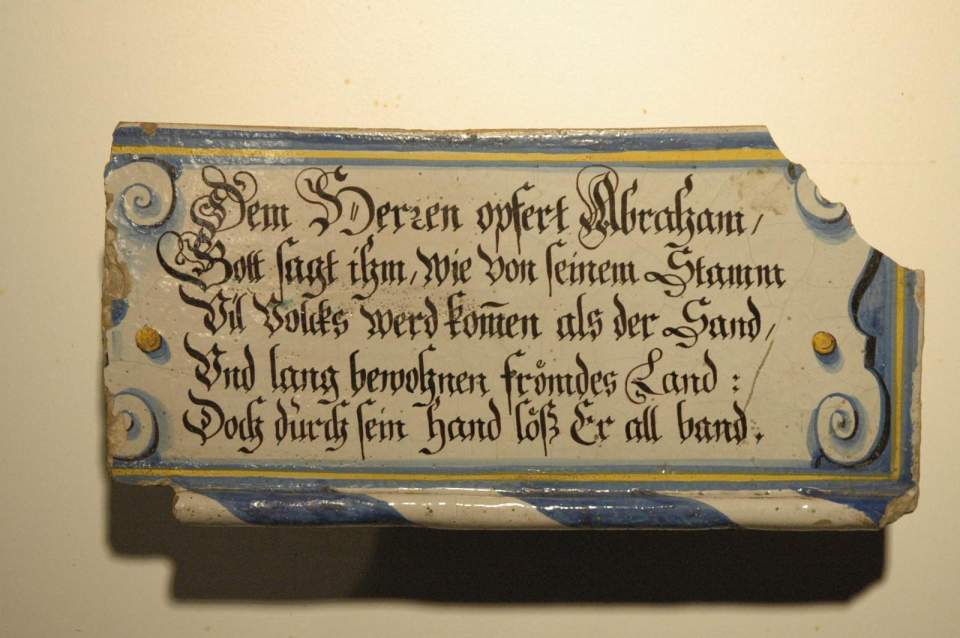 Dem Herren opfert Abraham/
Gott sagt ihm/ wie von seinem Stamm
Vil Volcks werd kom̄en als der Sand/
Vnd lang bewohnen frömdes Land :
Doch durch sein hand löß Er all band.